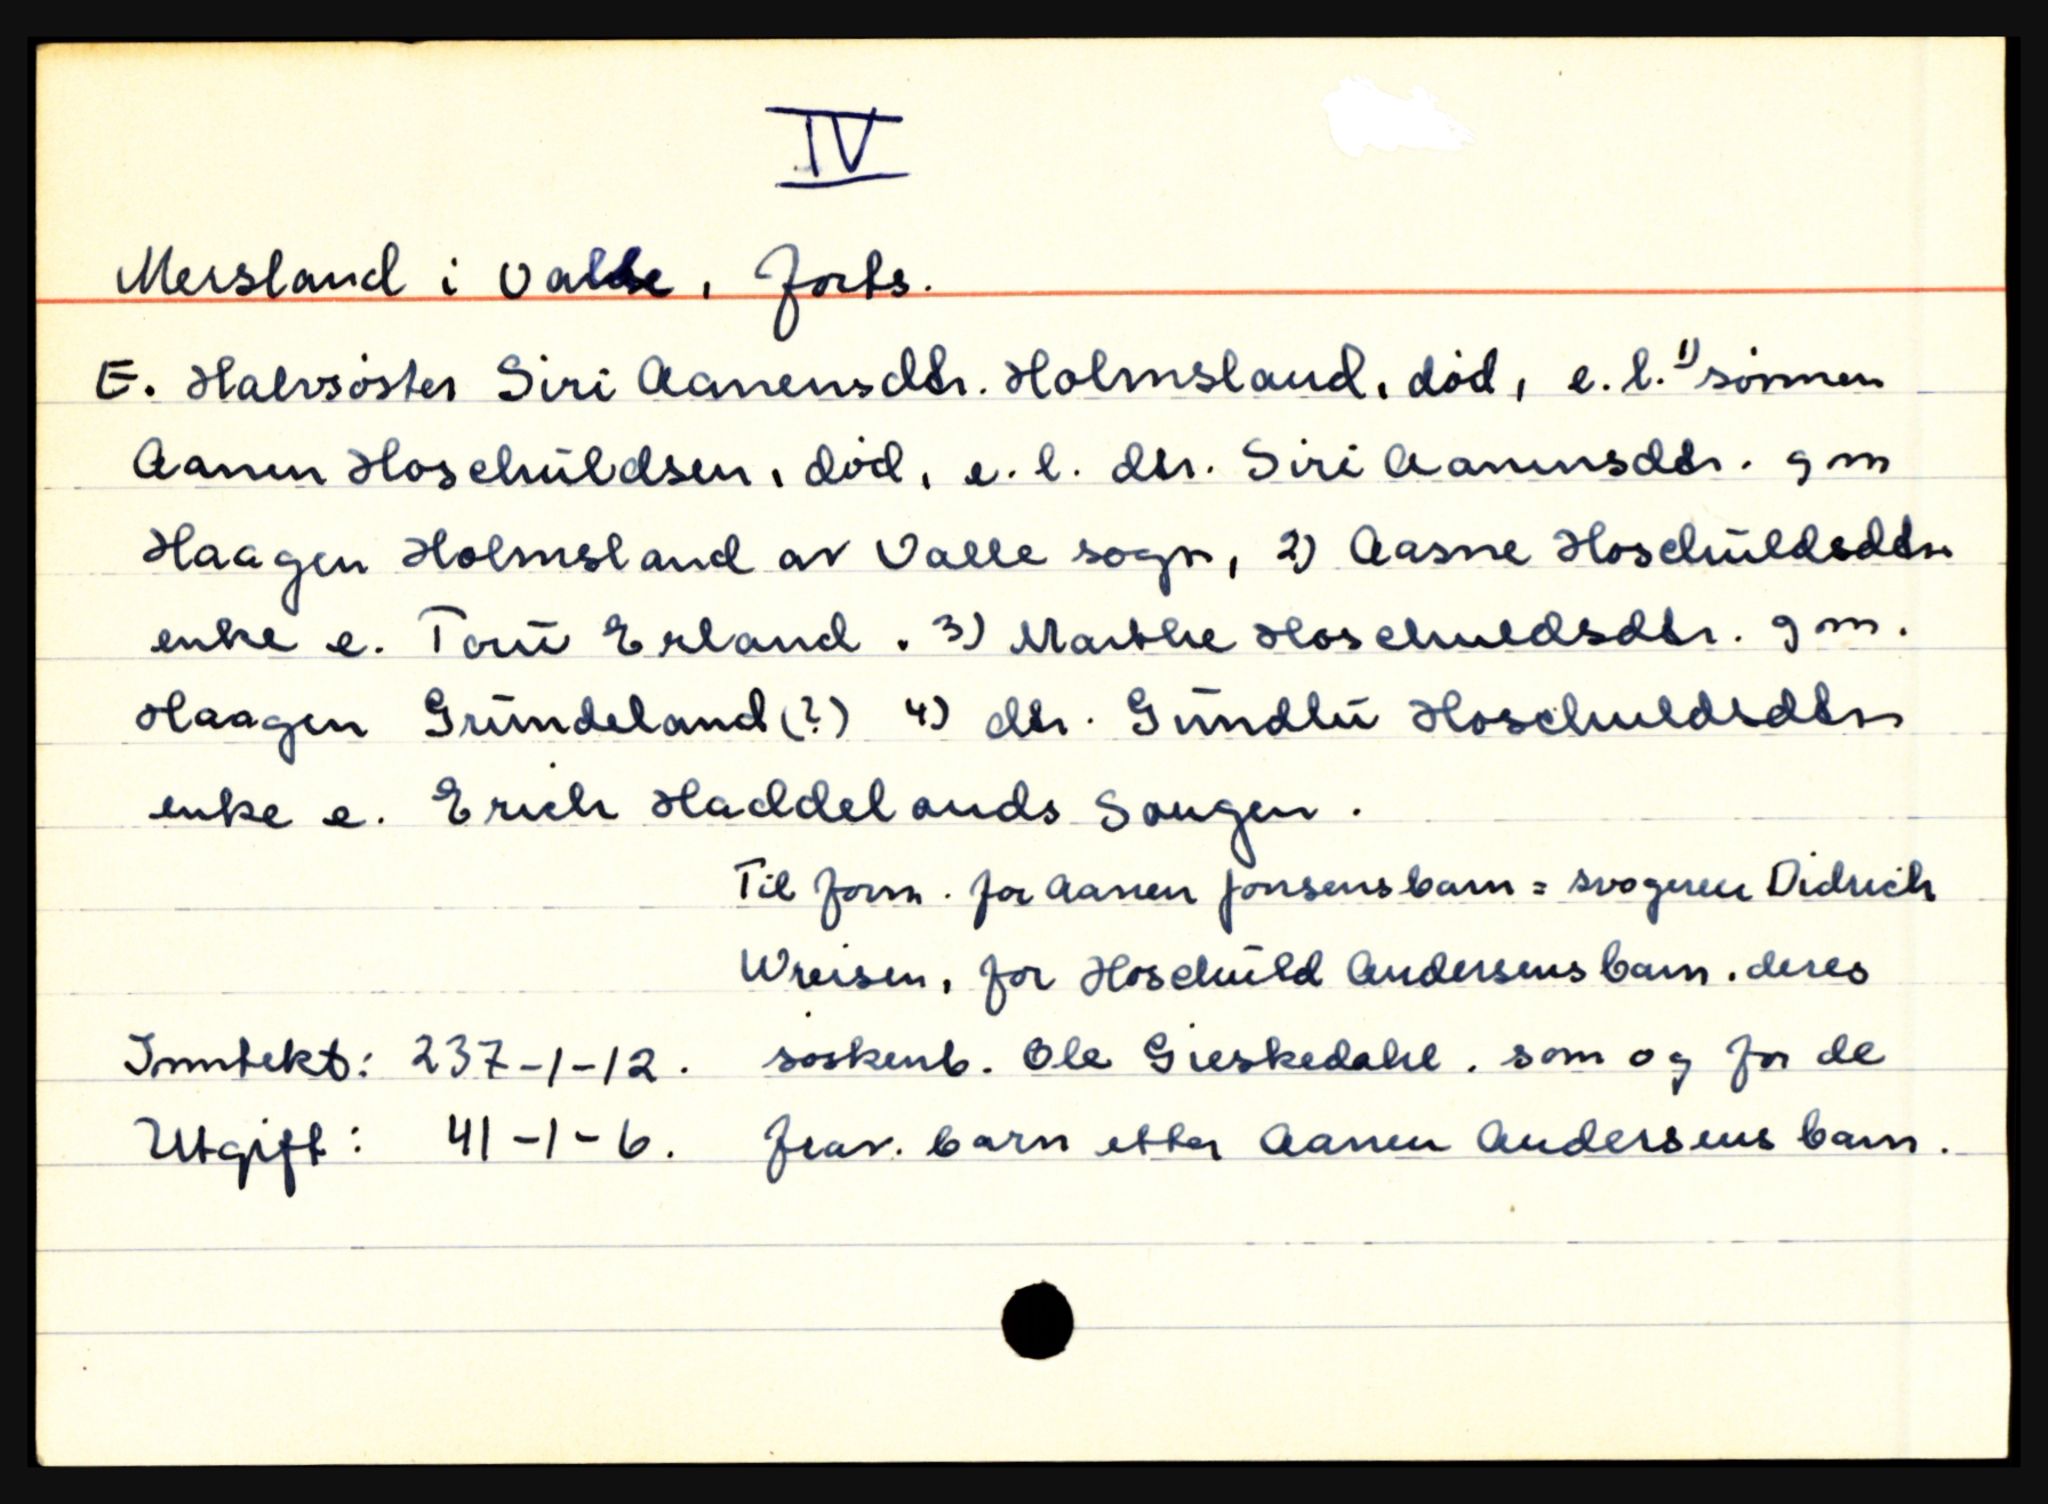 IV
Mersland i Valle, forts.
E. Halvsöster Siri Aanensdtr. Holmsland, död, e. l. 1) sönnen
Aanen Hoschüldsen, död, e. l. dtr. Siri Aanensdtr. gm
Haagen Holmsland av Valle sogn, 2) Aasne Hoschüldsdtr.
enke e. Torü Erland. 3) Marthe Hoschuldsdtr. gm.
Haagen Gründeland (?) 4) dtr. Gündlü Hoschuldsdtr.
enke e. Erich Haddelands Sougen.
Til form. for Aanen Jonsens barn = svogeren Didrich
Wreisen, for Hoschüld Andersens barn. deres
Inntekt: 237-1-12. söskenb. Ole Gieskedahl. som og for de
Utgift: 41-1-6. frav. barn etter Aanen Andersens barn.